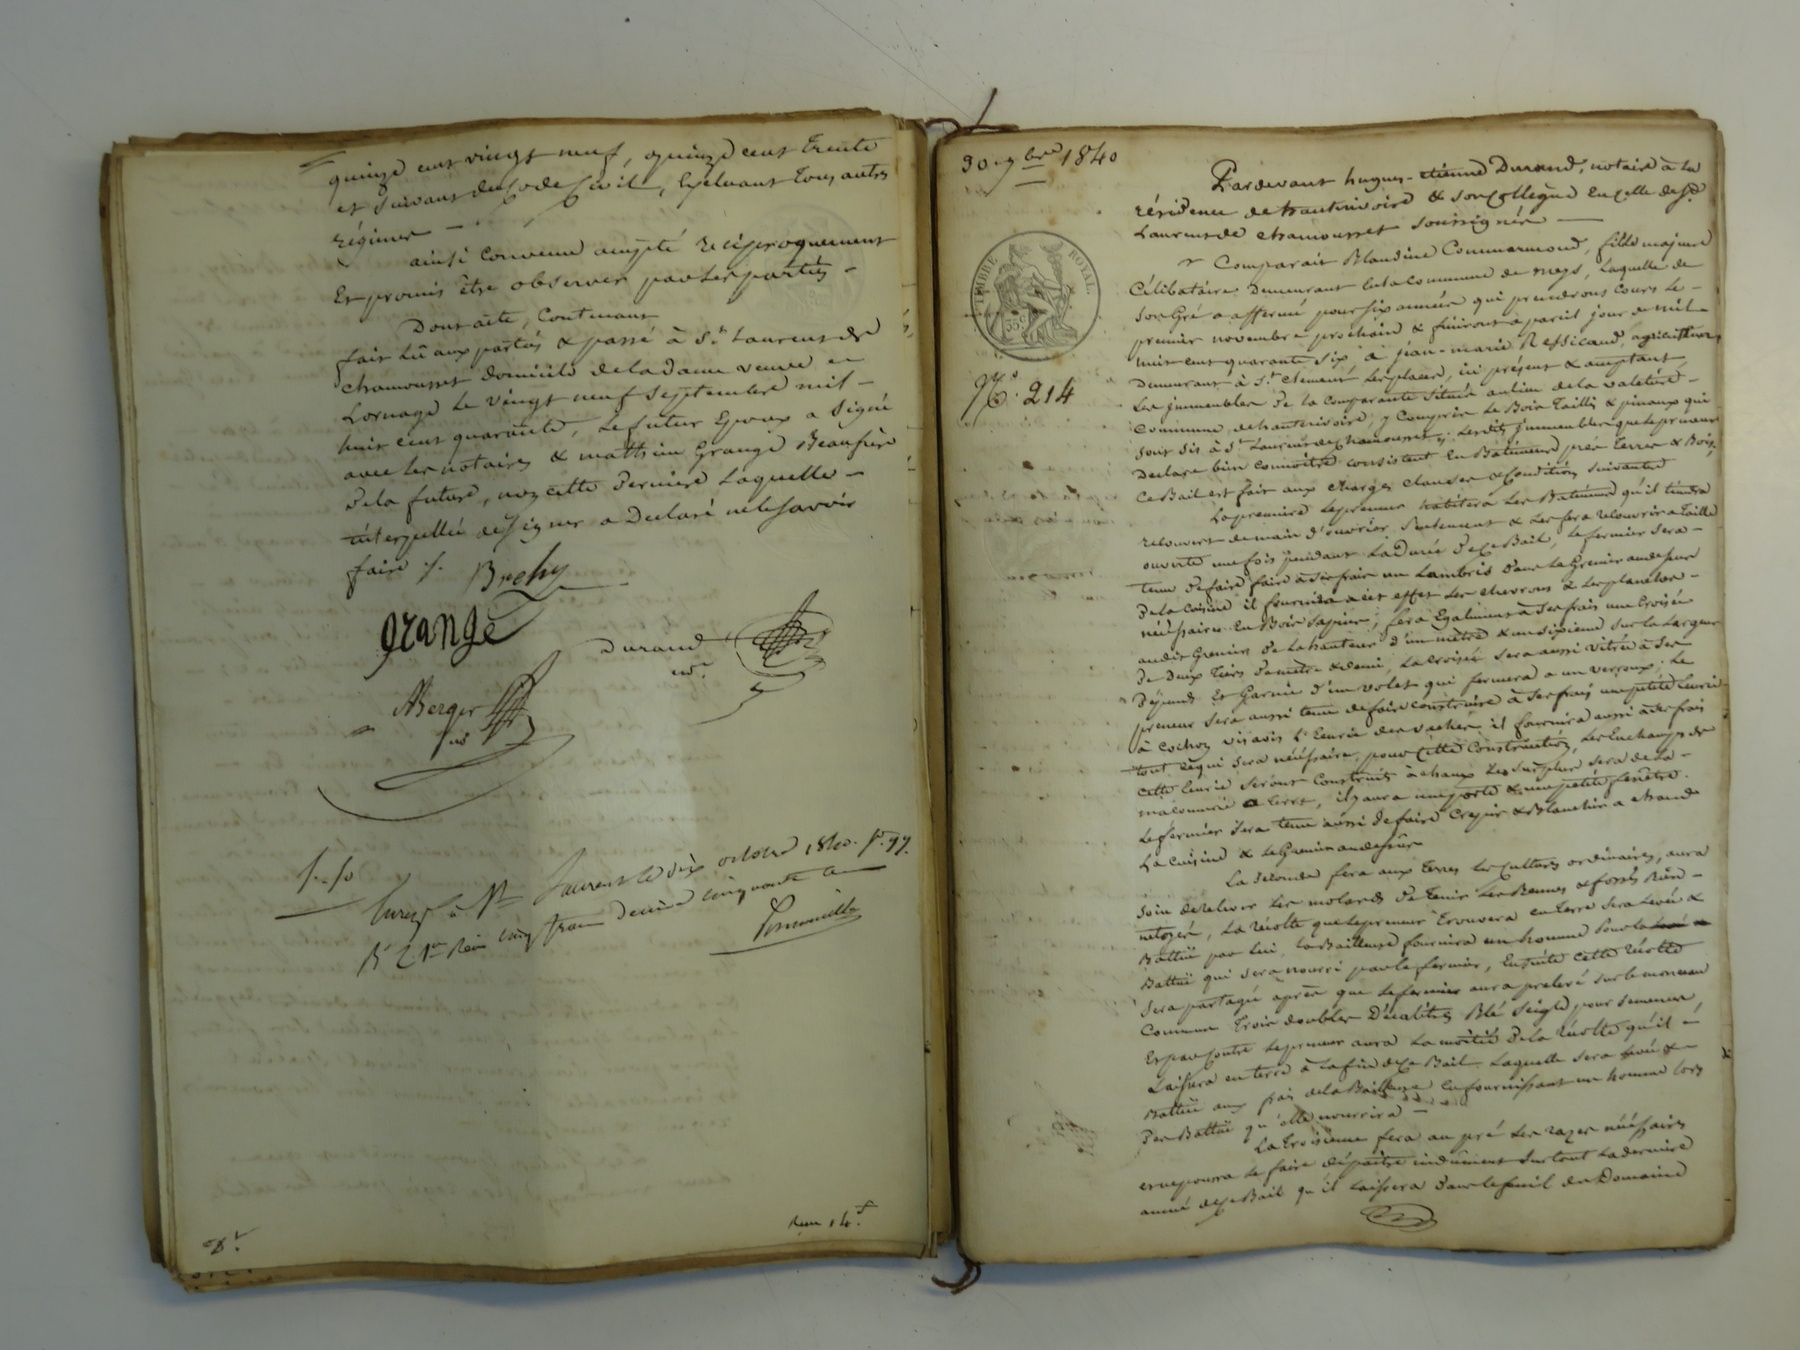 quinze cent vingt neuf, quinze cent trente
et suivant du Code Civil, Excluant tous autres
régimes —
ainsi convenu accepté réciproquement
Et promis être observer par les parties —
Dont acte, Contenant
fait lû aux parties & passé à St. Laurent de
chamousset domicile de la dame veuve
Lornage le vingt neuf Septembre mil —
huit cent quarante, le futur Epoux a Signé
avec les notaires & mathieu Grange Beaufrère
de la future, non cette dernière Laquelle —
interpellée de Signer a Déclaré ne le Savoir
faire ./.
Brehy
grange
Durand
nre.
ABerger
nre
f. 50
Enreg. à St Laurent le dix octobre 1840. fo. 97.
Rç cinq francs decime cinquante c
Dt.
Rem 14.f
30 9bre 1840
TIMBRE ROYAL.
35c
No. 214
Pardevant hugues-etienne Durand, notaire à la
résidence de hauterivoire & son Collègue en celle de St.
Laurent de chamousset soussignés —
Comparait Blandine Commarmond, fille majeure
Célibataire Demeurant en la commune de meys, Laquelle de
Son Gré a affermé pour Six années qui prendront cours le —
premier novembre prochain & finiront à pareil jour de mil —
huit cent quarante Six à jean-marie Ressicaud, agriculteur
Demeurant à St. clement les places, ici présent & acceptant
Les immeubles De la Comparante Situés au lieu de la valetière —
Commune de hauterivoire, y Compris le Bois Taillis & pinaux qui
sont sis à St. Laurent de Chamousset; Lesdits immeubles que le preneur
Déclare bien connoitre consistent En Batiments prés terres & Bois,
Ce Bail est fait aux charges clauses & Conditions Suivantes
La première le preneur habitera Les Batiments qu'il tiendra
recouvert de main d'ouvrier Seulement & Les fera recouvrir a Taille
ouverte une fois pendant La Durée De Ce Bail, le fermier sera —
tenu De faire faire à Ses frais un Lambris Dans Le Grenier audessus
De la Cuisine il fournira a cet effet Les chevrons & les planches —
nécessaires En Bois Sapin, fera Egalement à Ses frais une Croisée
audit Grenier De la hauteur d'un mètre & un Sixième Sur la Largeur
De Deux tiers De mètre & demi, La croisée sera aussi vitrée a Ses
Dépends Et Garnie d'un volet qui fermera a un verroux; Le
preneur Sera aussi tenu de faire construire à Ses frais une petite Ecurie
à Cochon vis avis L'Ecurie des vaches il fournira aussi à Ses frais
tout ce qui Sera nécessaire pour Cette Construction, Les Enchamps de
cette Ecurie seront construits à chaux Le Surplus sera de la —
maconnerie a terre, il y aura une porte & une petite fenêtre.
Le fermier Sera tenu aussi De faire Crepir & Blanchir a chaud
La cuisine & Le Grenier audessus
La Seconde fera aux terres Les Cultures ordinaires, aura
soin de relever Les molards De tenir Les Bennes & fossés Bien —
netoyés, La récolte que le preneur trouvera en terre Sera levée &
Battue par Lui, La Bailleuse fournira un homme pour la
Battue qui Sera nourri par le fermier, Ensuite cette récolte
Sera partagée après que Le fermier aura prelevé Sur le monceau
Commun trois doubles Décalitres Blé Seigle pour Semence,
Et par Contre Le preneur aura La moitié De la récolte qu'il —
Laissera en terre à la fin de Ce Bail Laquelle sera levée & —
Battue aux frais de la Bailleuse En fournissant un homme lors
Des Battue qu'elle nourrira —
La troisieme fera au pré les razes nécéssaires
et ne poura Le faire dépaitre induement Surtout La dernière
année de Ce Bail qu'il Laissera Dans le fenil du Domaine